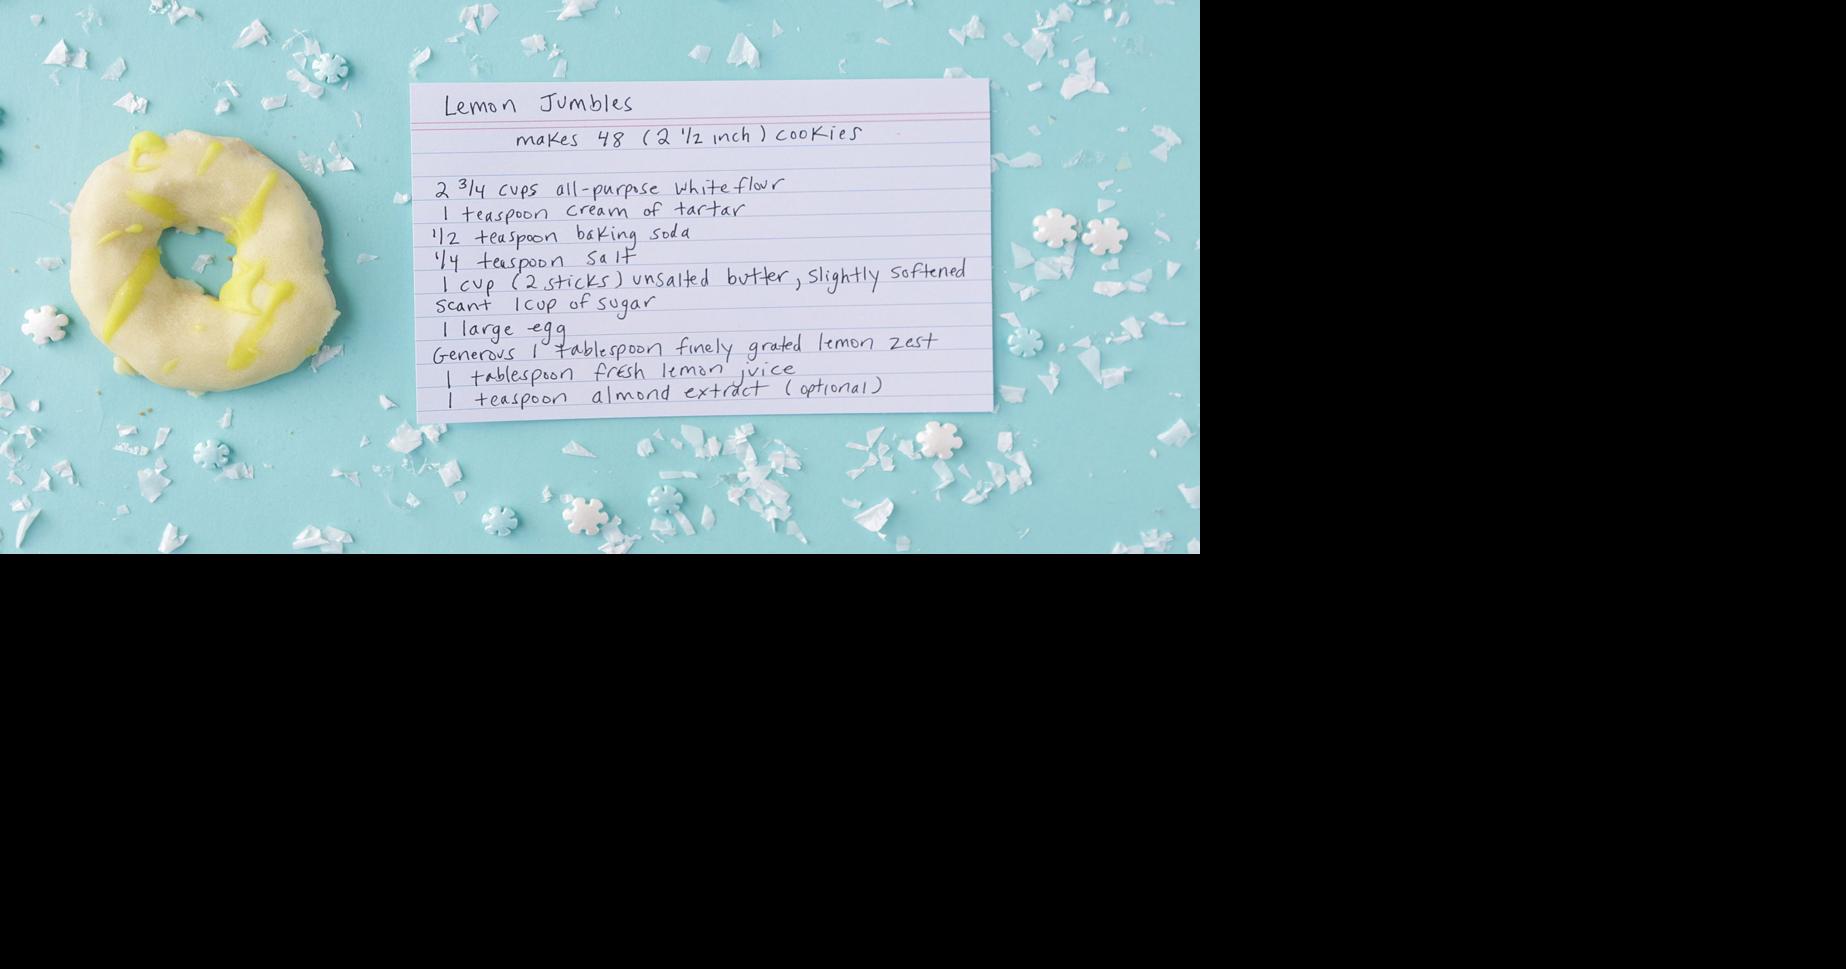 Lemon Jumbles
makes 48 (2 1/2 inch) cookies
2 3/4 cups all-purpose white flour
1 teaspoon cream of tartar
1/2 teaspoon baking soda
1/4 teaspoon salt
1 cup (2 sticks) unsalted butter, slightly softened
scant 1 cup of sugar
1 large egg
Generous 1 tablespoon finely grated lemon zest
1 tablespoon fresh lemon juice
1 teaspoon almond extract (optional)